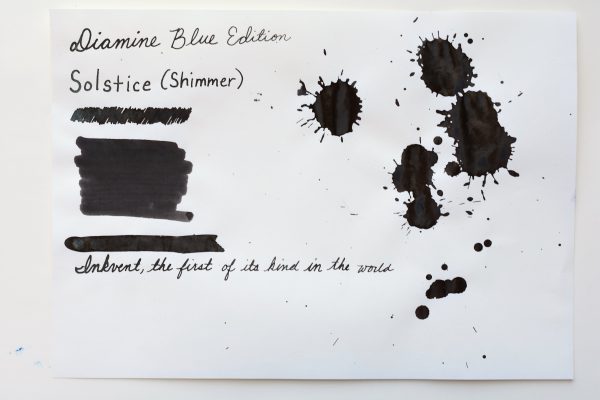 Diamine Blue Edition
Solstice (Shimmer)
Inkvent, the first of its kind in the world